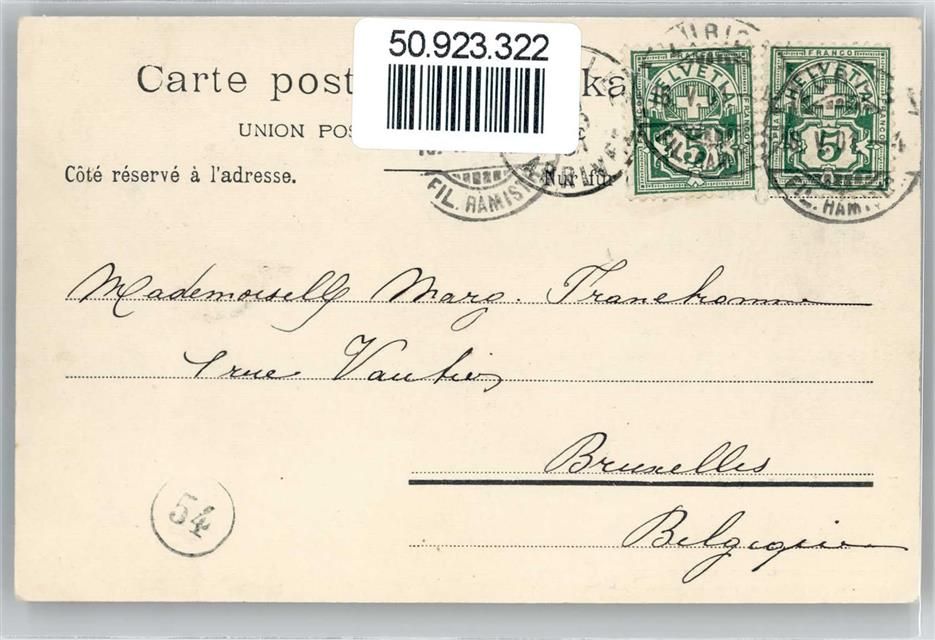 50.923.322
Carte post ka
UNION POS
Côté réservé à l'adresse. Nur für
HELVETIA FRANCO 5
FRANCO HELVETIA FRANCO 5
FIL. RAMIS
FIL. HAM
Mademoiselle Marg. Franchomme
1 rue Vautier
Bruxelles
Belgique
54